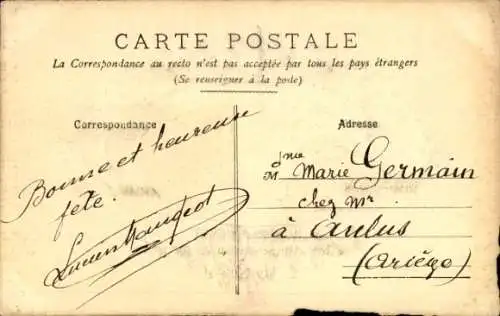 CARTE POSTALE
La Correspondance au recto n'est pas acceptée par tous les pays étrangers
(Se renseigner à la poste)
Correspondance
Adresse
Bonne et heureuse
fête.
Lucien
Mme Marie Germain
chez Mr
à Aulus
(Ariége)